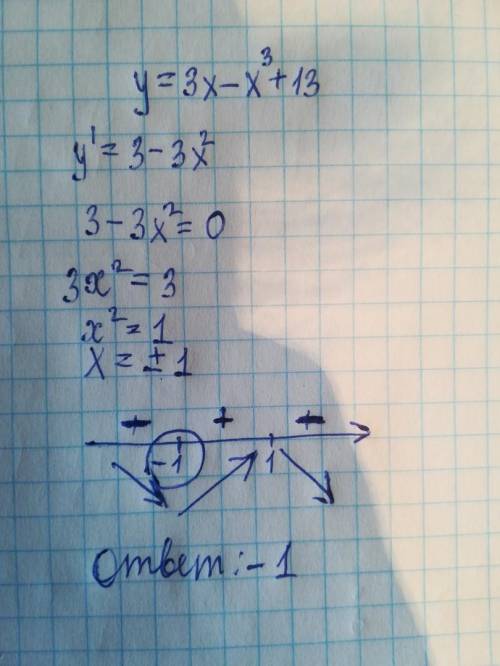 y = 3x - x³ + 13
y' = 3 - 3x²
3 - 3x² = 0
3x² = 3
x² = 1
x = ± 1
- + -
-1 1
Ответ: -1